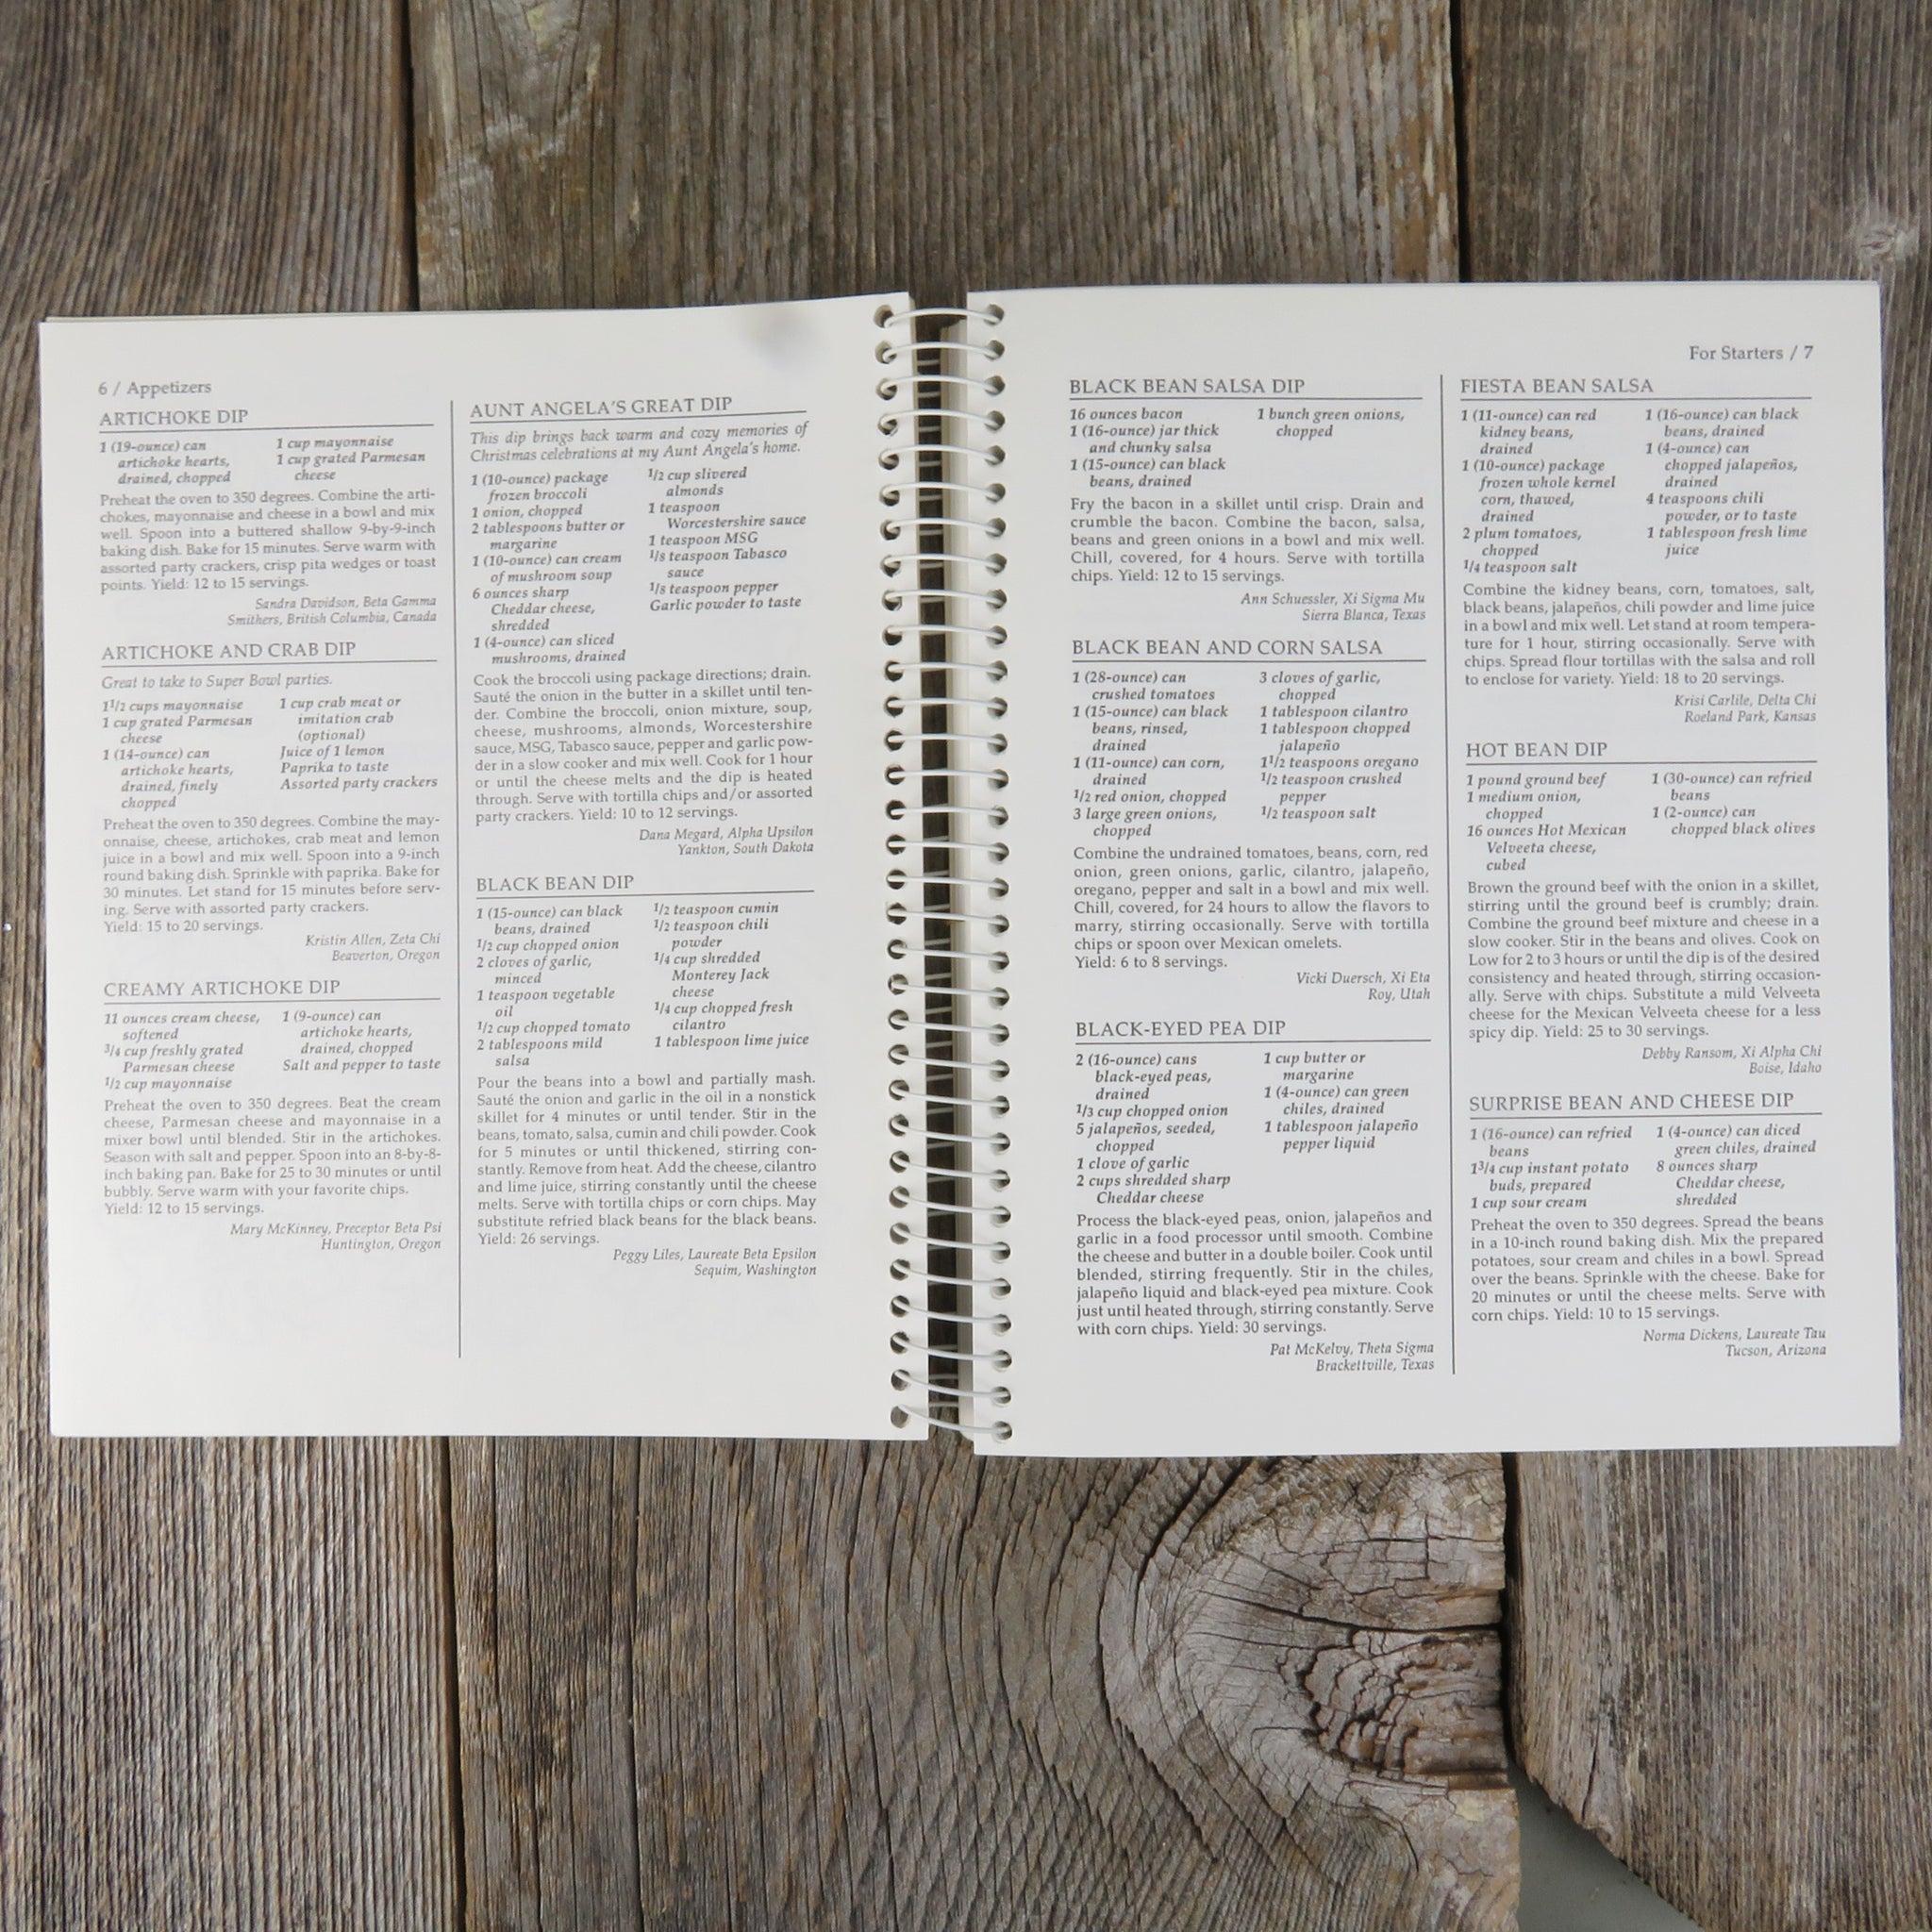 6 / Appetizers
ARTICHOKE DIP
1 (19-ounce) can
artichoke hearts,
drained, chopped
1 cup mayonnaise
1 cup grated Parmesan
cheese
Preheat the oven to 350 degrees. Combine the arti-
chokes, mayonnaise and cheese in a bowl and mix
well. Spoon into a buttered shallow 9-by-9-inch
baking dish. Bake for 15 minutes. Serve warm with
assorted party crackers, crisp pita wedges or toast
points. Yield: 12 to 15 servings.
Sandra Davidson, Beta Gamma
Smithers, British Columbia, Canada
ARTICHOKE AND CRAB DIP
Great to take to Super Bowl parties.
1 1/2 cups mayonnaise
1 cup grated Parmesan
cheese
1 (14-ounce) can
artichoke hearts,
drained, finely
chopped
1 cup crab meat or
imitation crab
(optional)
Juice of 1 lemon
Paprika to taste
Assorted party crackers
Preheat the oven to 350 degrees. Combine the may-
onnaise, cheese, artichokes, crab meat and lemon
juice in a bowl and mix well. Spoon into a 9-inch
round baking dish. Sprinkle with paprika. Bake for
30 minutes. Let stand for 15 minutes before serv-
ing. Serve with assorted party crackers.
Yield: 15 to 20 servings.
Kristin Allen, Zeta Chi
Beaverton, Oregon
CREAMY ARTICHOKE DIP
11 ounces cream cheese,
softened
3/4 cup freshly grated
Parmesan cheese
1/2 cup mayonnaise
1 (9-ounce) can
artichoke hearts,
drained, chopped
Salt and pepper to taste
Preheat the oven to 350 degrees. Beat the cream
cheese, Parmesan cheese and mayonnaise in a
mixer bowl until blended. Stir in the artichokes.
Season with salt and pepper. Spoon into an 8-by-8-
inch baking pan. Bake for 25 to 30 minutes or until
bubbly. Serve warm with your favorite chips.
Yield: 12 to 15 servings.
Mary McKinney, Preceptor Beta Psi
Huntington, Oregon
AUNT ANGELA'S GREAT DIP
This dip brings back warm and cozy memories of
Christmas celebrations at my Aunt Angela's home.
1 (10-ounce) package
frozen broccoli
1 onion, chopped
2 tablespoons butter or
margarine
1 (10-ounce) can cream
of mushroom soup
6 ounces sharp
Cheddar cheese,
shredded
1 (4-ounce) can sliced
mushrooms, drained
1/2 cup slivered
almonds
1 teaspoon
Worcestershire sauce
1 teaspoon MSG
1/8 teaspoon Tabasco
sauce
1/8 teaspoon pepper
Garlic powder to taste
Cook the broccoli using package directions; drain.
Sauté the onion in the butter in a skillet until ten-
der. Combine the broccoli, onion mixture, soup,
cheese, mushrooms, almonds, Worcestershire
sauce, MSG, Tabasco sauce, pepper and garlic pow-
der in a slow cooker and mix well. Cook for 1 hour
or until the cheese melts and the dip is heated
through. Serve with tortilla chips and/or assorted
party crackers. Yield: 10 to 12 servings.
Dana Megard, Alpha Upsilon
Yankton, South Dakota
BLACK BEAN DIP
1 (15-ounce) can black
beans, drained
1/2 cup chopped onion
2 cloves of garlic,
minced
1 teaspoon vegetable
oil
1/2 cup chopped tomato
2 tablespoons mild
salsa
1/2 teaspoon cumin
1/2 teaspoon chili
powder
1/4 cup shredded
Monterey Jack
cheese
1/4 cup chopped fresh
cilantro
1 tablespoon lime juice
Pour the beans into a bowl and partially mash.
Sauté the onion and garlic in the oil in a nonstick
skillet for 4 minutes or until tender. Stir in the
beans, tomato, salsa, cumin and chili powder. Cook
for 5 minutes or until thickened, stirring con-
stantly. Remove from heat. Add the cheese, cilantro
and lime juice, stirring constantly until the cheese
melts. Serve with tortilla chips or corn chips. May
substitute refried black beans for the black beans.
Yield: 26 servings.
Peggy Liles, Laureate Beta Epsilon
Sequim, Washington
For Starters / 7
BLACK BEAN SALSA DIP
16 ounces bacon
1 (16-ounce) jar thick
and chunky salsa
1 (15-ounce) can black
beans, drained
1 bunch green onions,
chopped
Fry the bacon in a skillet until crisp. Drain and
crumble the bacon. Combine the bacon, salsa,
beans and green onions in a bowl and mix well.
Chill, covered, for 4 hours. Serve with tortilla
chips. Yield: 12 to 15 servings.
Ann Schuessler, Xi Sigma Mu
Sierra Blanca, Texas
BLACK BEAN AND CORN SALSA
1 (28-ounce) can
crushed tomatoes
1 (15-ounce) can black
beans, rinsed,
drained
1 (11-ounce) can corn,
drained
1/2 red onion, chopped
3 large green onions,
chopped
3 cloves of garlic,
chopped
1 tablespoon cilantro
1 tablespoon chopped
jalapeño
1 1/2 teaspoons oregano
1/2 teaspoon crushed
pepper
1/2 teaspoon salt
Combine the undrained tomatoes, beans, corn, red
onion, green onions, garlic, cilantro, jalapeño,
oregano, pepper and salt in a bowl and mix well.
Chill, covered, for 24 hours to allow the flavors to
marry, stirring occasionally. Serve with tortilla
chips or spoon over Mexican omelets.
Yield: 6 to 8 servings.
Vicki Duersch, Xi Eta
Roy, Utah
BLACK-EYED PEA DIP
2 (16-ounce) cans
black-eyed peas,
drained
1/3 cup chopped onion
5 jalapeños, seeded,
chopped
1 clove of garlic
2 cups shredded sharp
Cheddar cheese
1 cup butter or
margarine
1 (4-ounce) can green
chiles, drained
1 tablespoon jalapeño
pepper liquid
Process the black-eyed peas, onion, jalapeños and
garlic in a food processor until smooth. Combine
the cheese and butter in a double boiler. Cook until
blended, stirring frequently. Stir in the chiles,
jalapeño liquid and black-eyed pea mixture. Cook
just until heated through, stirring constantly. Serve
with corn chips. Yield: 30 servings.
Pat McKelvy, Theta Sigma
Brackettville, Texas
FIESTA BEAN SALSA
1 (11-ounce) can red
kidney beans,
drained
1 (10-ounce) package
frozen whole kernel
corn, thawed,
drained
2 plum tomatoes,
chopped
1/4 teaspoon salt
1 (16-ounce) can black
beans, drained
1 (4-ounce) can
chopped jalapeños,
drained
4 teaspoons chili
powder, or to taste
1 tablespoon fresh lime
juice
Combine the kidney beans, corn, tomatoes, salt,
black beans, jalapeños, chili powder and lime juice
in a bowl and mix well. Let stand at room tempera-
ture for 1 hour, stirring occasionally. Serve with
chips. Spread flour tortillas with the salsa and roll
to enclose for variety. Yield: 18 to 20 servings.
Krisi Carlile, Delta Chi
Roeland Park, Kansas
HOT BEAN DIP
1 pound ground beef
1 medium onion,
chopped
16 ounces Hot Mexican
Velveeta cheese,
cubed
1 (30-ounce) can refried
beans
1 (2-ounce) can
chopped black olives
Brown the ground beef with the onion in a skillet,
stirring until the ground beef is crumbly; drain.
Combine the ground beef mixture and cheese in a
slow cooker. Stir in the beans and olives. Cook on
Low for 2 to 3 hours or until the dip is of the desired
consistency and heated through, stirring occasion-
ally. Serve with chips. Substitute a mild Velveeta
cheese for the Mexican Velveeta cheese for a less
spicy dip. Yield: 25 to 30 servings.
Debby Ransom, Xi Alpha Chi
Boise, Idaho
SURPRISE BEAN AND CHEESE DIP
1 (16-ounce) can refried
beans
1 3/4 cup instant potato
buds, prepared
1 cup sour cream
1 (4-ounce) can diced
green chiles, drained
8 ounces sharp
Cheddar cheese,
shredded
Preheat the oven to 350 degrees. Spread the beans
in a 10-inch round baking dish. Mix the prepared
potatoes, sour cream and chiles in a bowl. Spread
over the beans. Sprinkle with the cheese. Bake for
20 minutes or until the cheese melts. Serve with
corn chips. Yield: 10 to 15 servings.
Norma Dickens, Laureate Tau
Tucson, Arizona